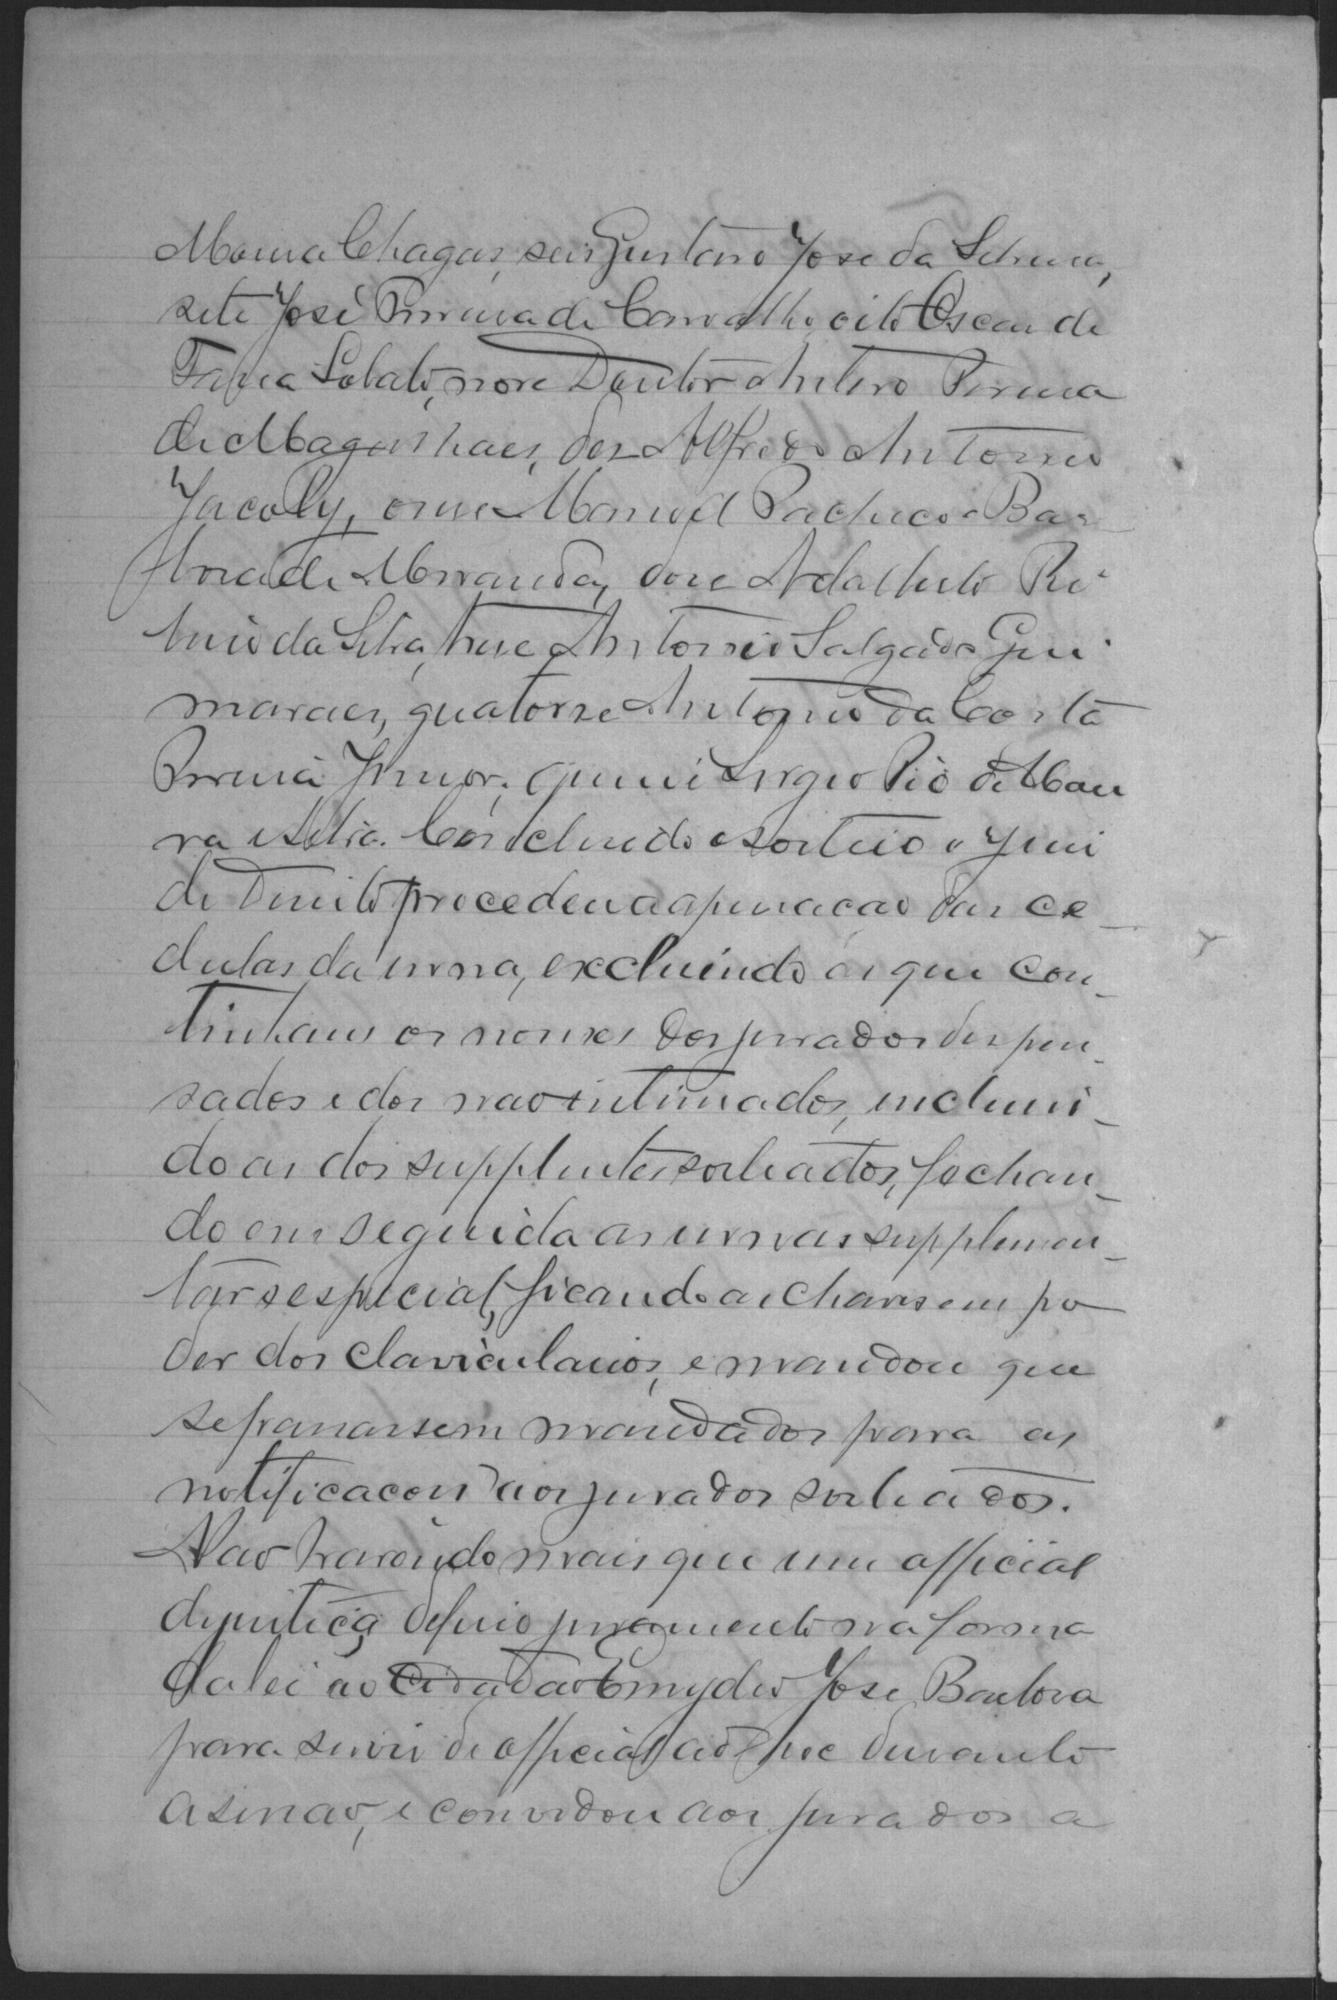 Moura Chagas, seis Gustavo José da Silveira,
sete José Pereira de Carvalho, oito Oscar de
Faria Lobato, nove Doutor Antero Pereira
de Magalhaes, dez Alfredo Antonio
Jacoby, onse Manoel Pacheco Bar
bosa de Miranda, dose Adalberto
da Silva, trese Antonio Salgado Gui
maraes, quatorse Antonio da Costa
Pereira Junior, quinse Sergio Pio de Mou
ra e Silva. Concluido o sorteio o Juiz
de Direito procedeu a apuração das ce-
dulas da urna, excluindo as que con-
tinham os nomes dos jurados dispen-
sados e dos nao intimados, inclui-
do as dos supplentes sorteados, fechan-
do em seguida as urnas supplemen-
tar e especial, ficando as chaves em po
der dos claviculários, e mandou que
se passassem mandados para as
notificacoes aos jurados sorteados.
Nao havendo mais que um official
de justiça deferio juramento na forma
da lei ao cidadao Emydio José Barbosa
para servir de official ad hoc durante
a sessao, e convidou aos jurados a